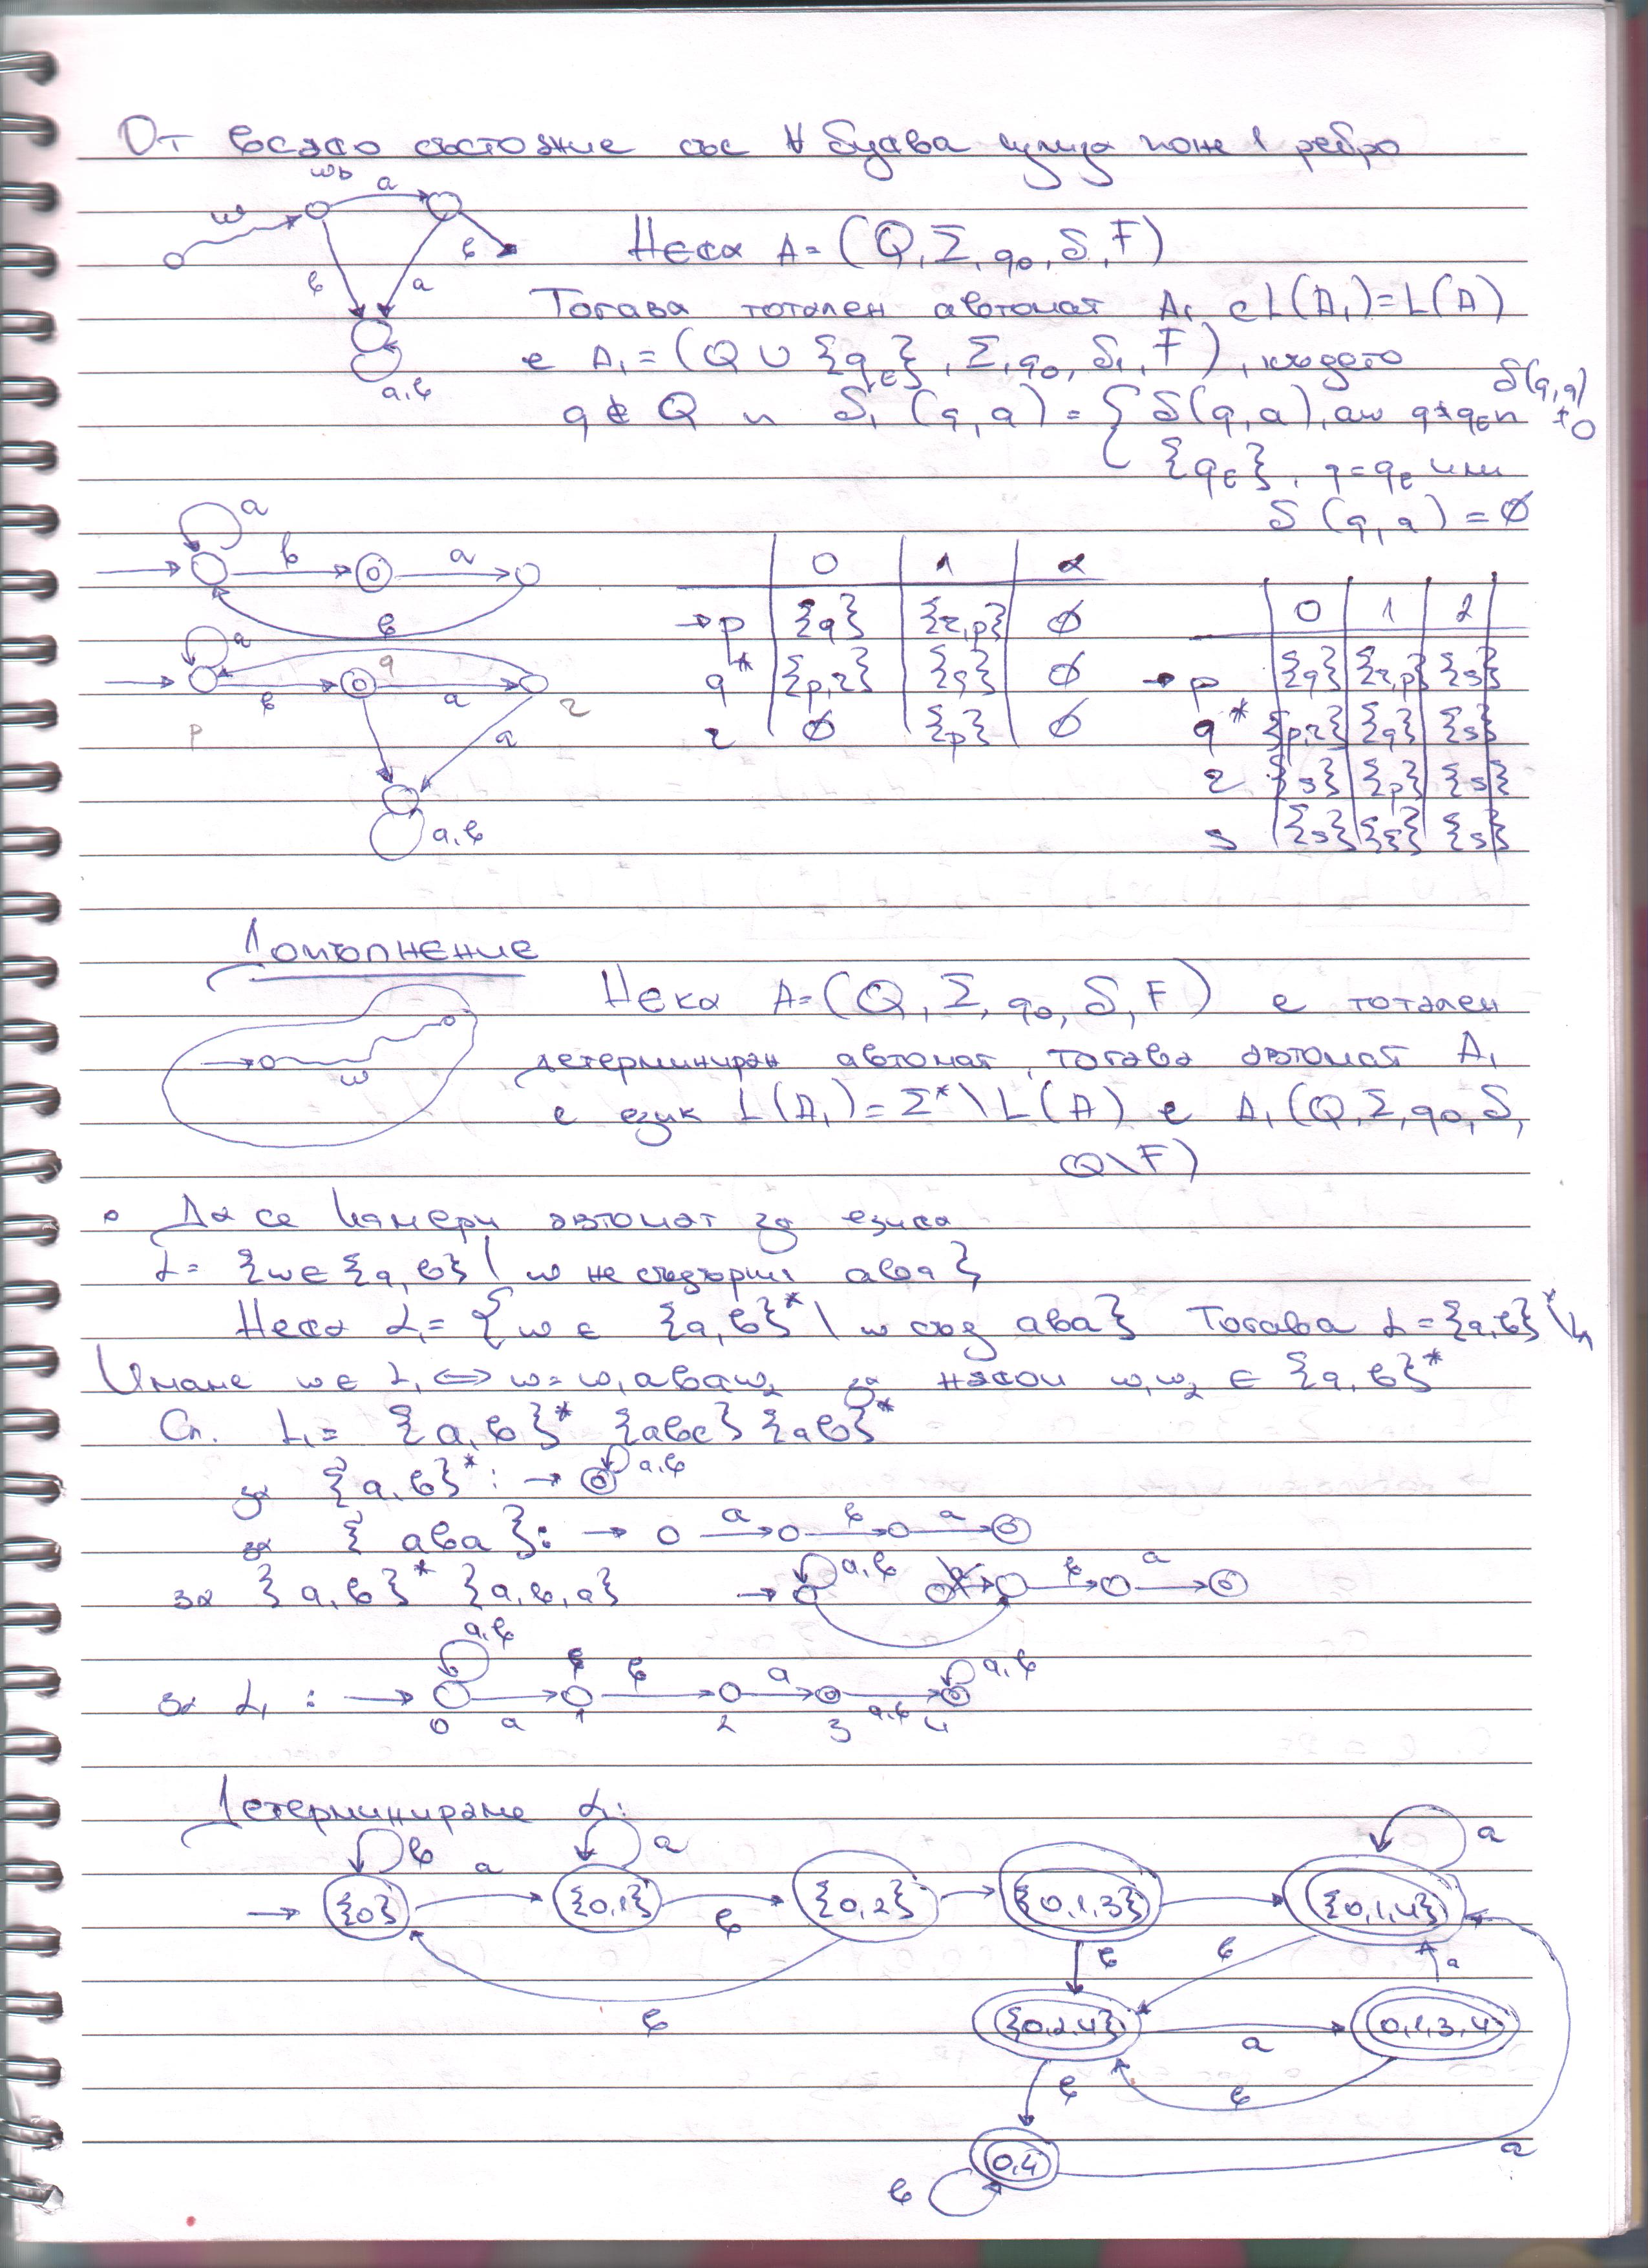 От всяко състояние със ∀ буква излиза поне 1 ребро
w wb a b a a,b
Нека A = (Q, Σ, q₀, δ, F)
Тогава тотален автомат A₁ с L(A₁) = L(A)
е A₁ = (Q ∪ {q_E}, Σ, q₀, δ₁, F), където
q ∉ Q и δ₁(q, a) = { δ(q, a), ако q ≠ q_E и δ(q, a) ≠ 0
{q_E}, q = q_E или
δ(q, a) = ∅
a в a в
a в q a p r a a,в
0 1 2
→ p {q} {r,p} ∅
q* {p,r} {q} ∅
r ∅ {p} ∅
0 1 2
→ p {q} {r,p} {s}
q* {p,r} {q} {s}
r {s} {p} {s}
s {s} {s} {s}
Допълнение
Нека A = (Q, Σ, q₀, δ, F) е тотален
w
детерминиран автомат, тогава автомат A₁
с език L(A₁) = Σ* \ L(A) е A₁ (Q, Σ, q₀, δ,
Q \ F)
• Да се намери автомат за езика
L = {w ∈ {a, в} | w не съдържа ава}
Нека L₁ = {w ∈ {a, в}* | w съд ава} Тогава L = {a, в}* \ L₁
Имаме w ∈ L₁ ⇔ w = w₁ ава w₂ за някои w₁w₂ ∈ {a, в}*
Сл. L₁ = {a, в}* {авс} {ав}*
за {a, в}* : → a,в
за {ава}: → a в a
за {a, в}* {a, в, a} → a,в a в a
за L₁ : → a,в a в a a,в a,в
0 1 2 3 4
Детерминираме L₁:
в a a
→ {0} a {0,1} в {0,2} {0,1,3} {0,1,4}
в в в a
{0,2,4} a 0,1,3,4
в в a
0,4
в